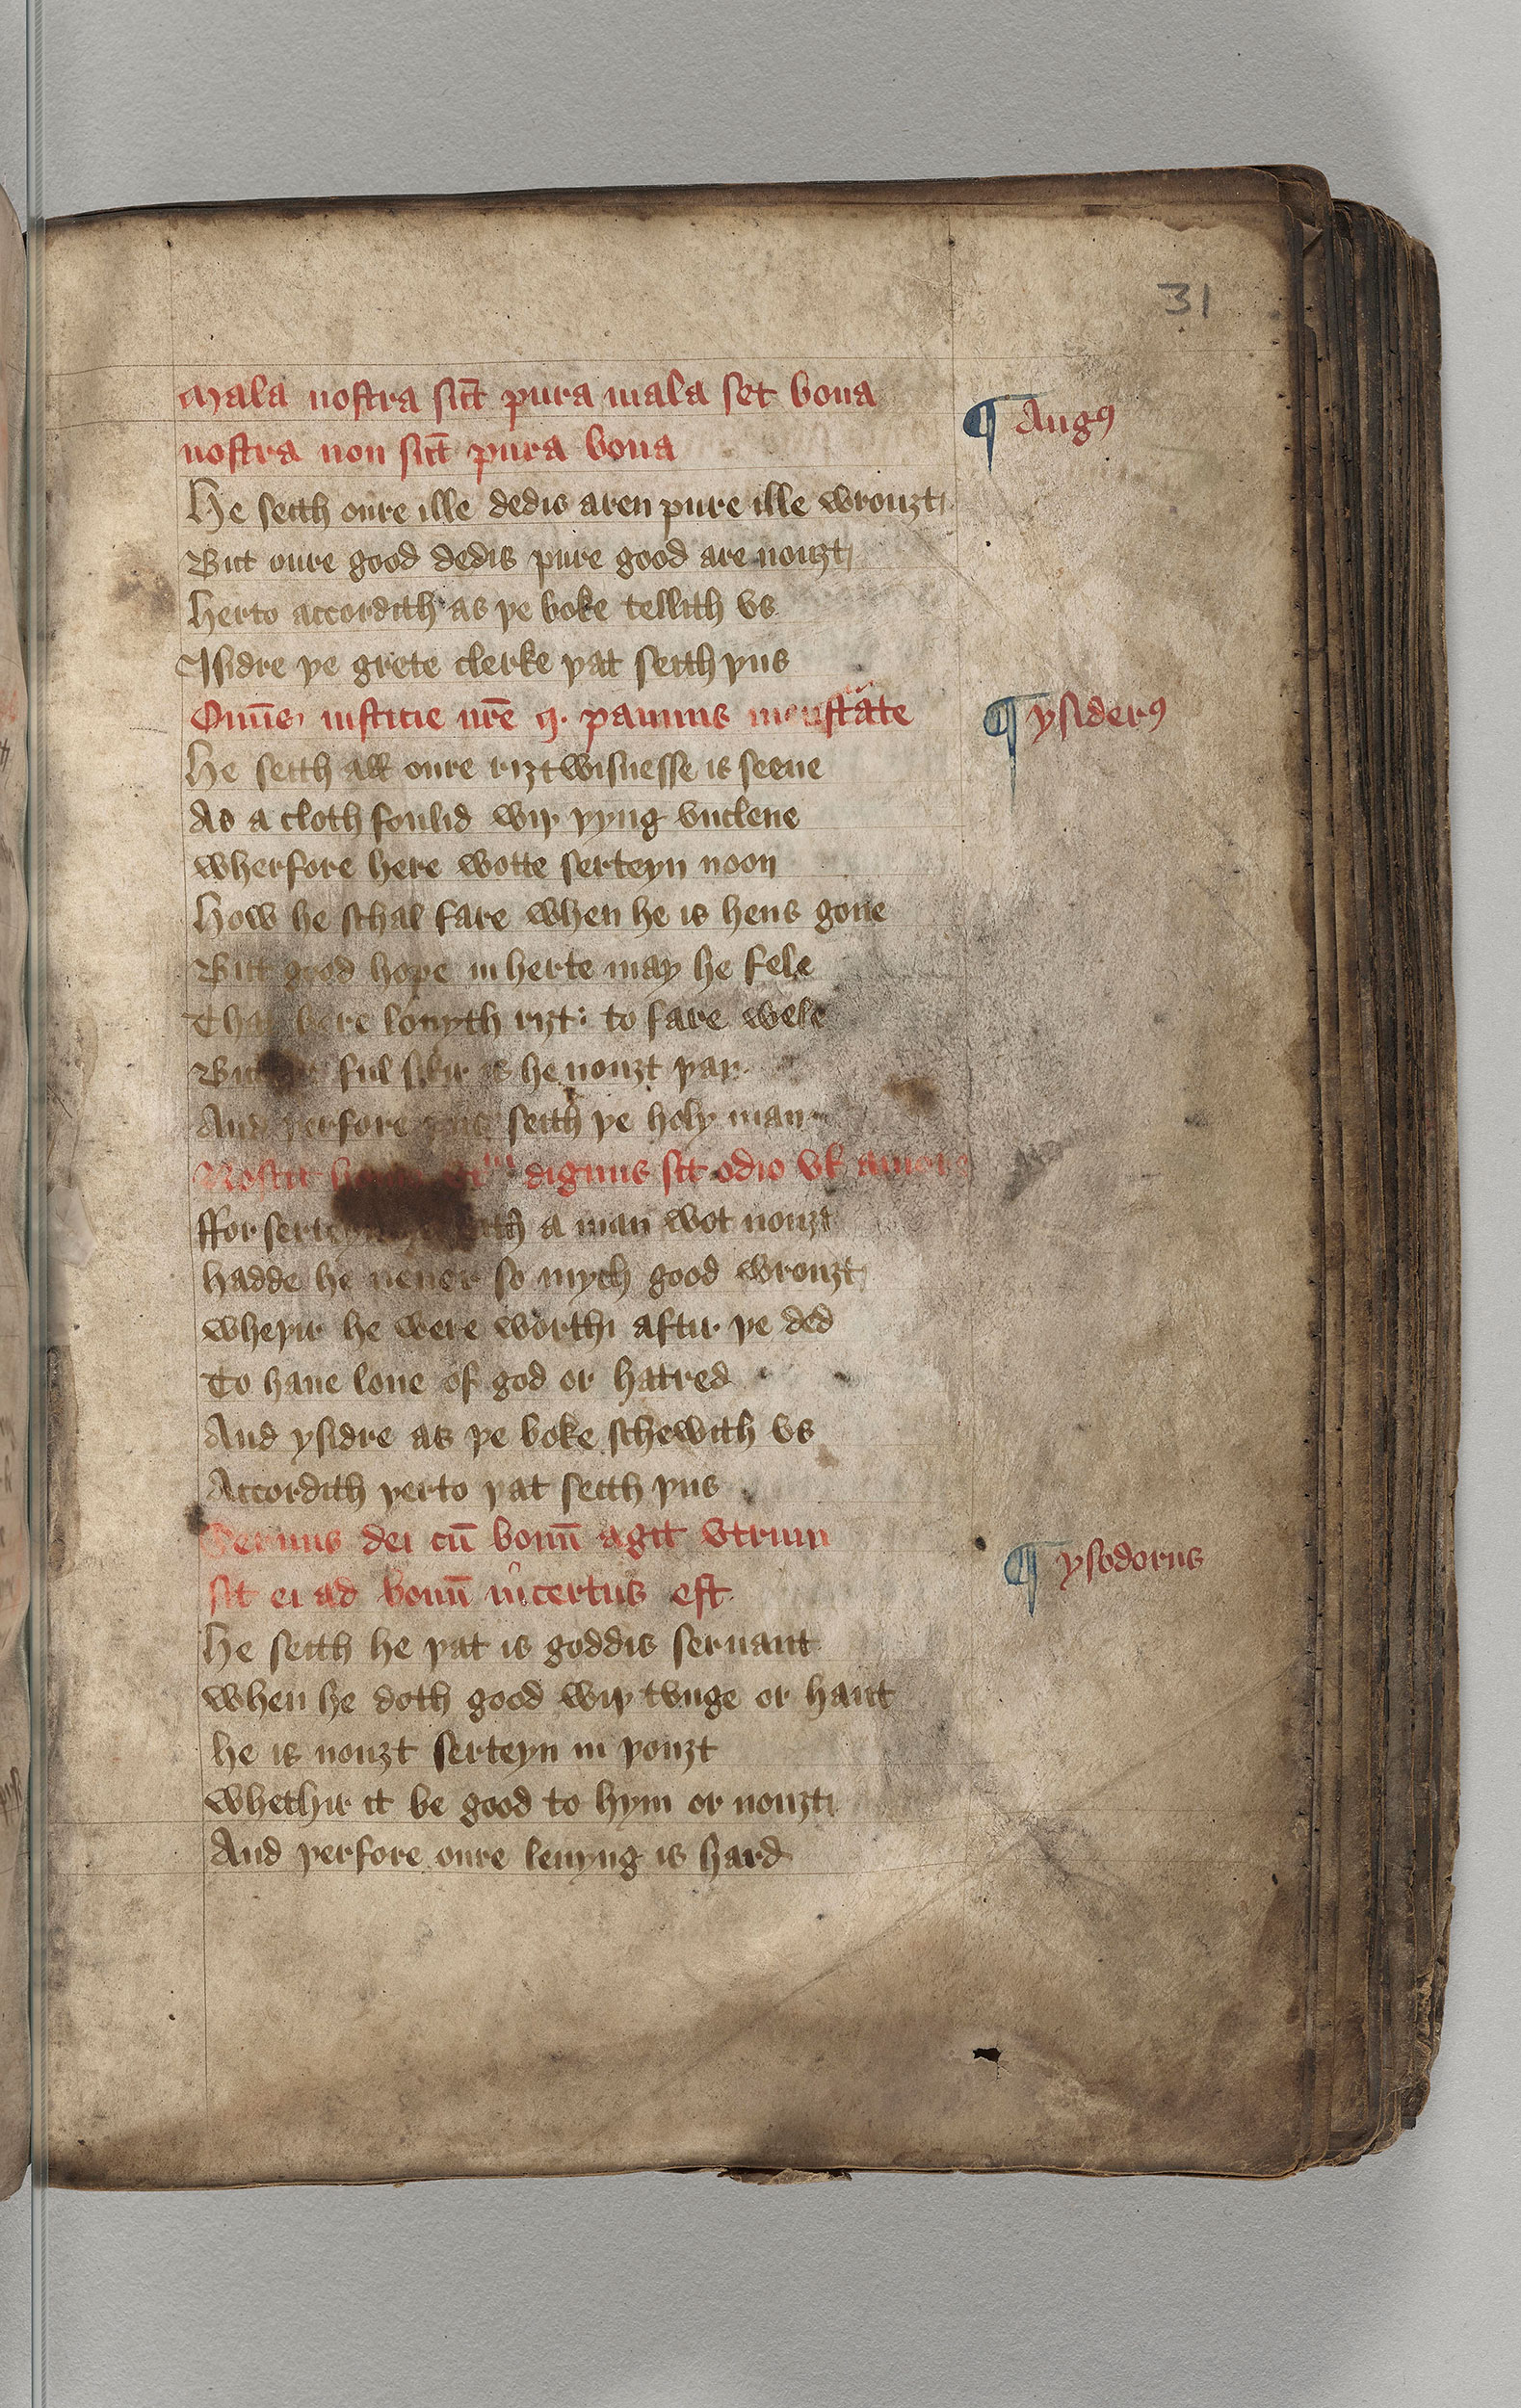 31
Mala nostra sūt pura mala set bona
¶ Augꝰ
nostra non sūt pura bona
He seith oure ille dedis aren pure ille wrouȝt
But oure good dedis pure good are nouȝt
Herto accordith as þe boke tellith vs
Isidre þe grete clerke þat seith þus
Omēs iusticie nr̄e q. pannus menstāte
¶ ysiderꝰ
He seith all oure riȝtwisnesse is seene
As a cloth foulid wiþ þyng vnclene
wherfore here wotte serteyn noon
How he schal fare when he is hens gone
But good hope in herte may he fele
That here louyth riȝt: to fare wele
But ful sikir is he nouȝt þan
And þerfore þus seith þe holy man
Nescit homo dignus sit odio vl̛ amore
ffor serteyn a man wot nouȝt
hadde he neuer so mych good wrouȝt
wheþir he were worthi aftir þe ded
To haue loue of god or hatred
And ysidre as þe boke schewith vs
Accordith þerto þat seith þus
Seruus dei cū bonū agit vtrum
¶ ysodorus
sit ei ad bonū incertus est
He seith he þat is goddis seruant
when he doth good wiþ tvnge or hant
he is nouȝt serteyn in þouȝt
whethir it be good to hym or nouȝt
And þerfore oure leuyng is hard